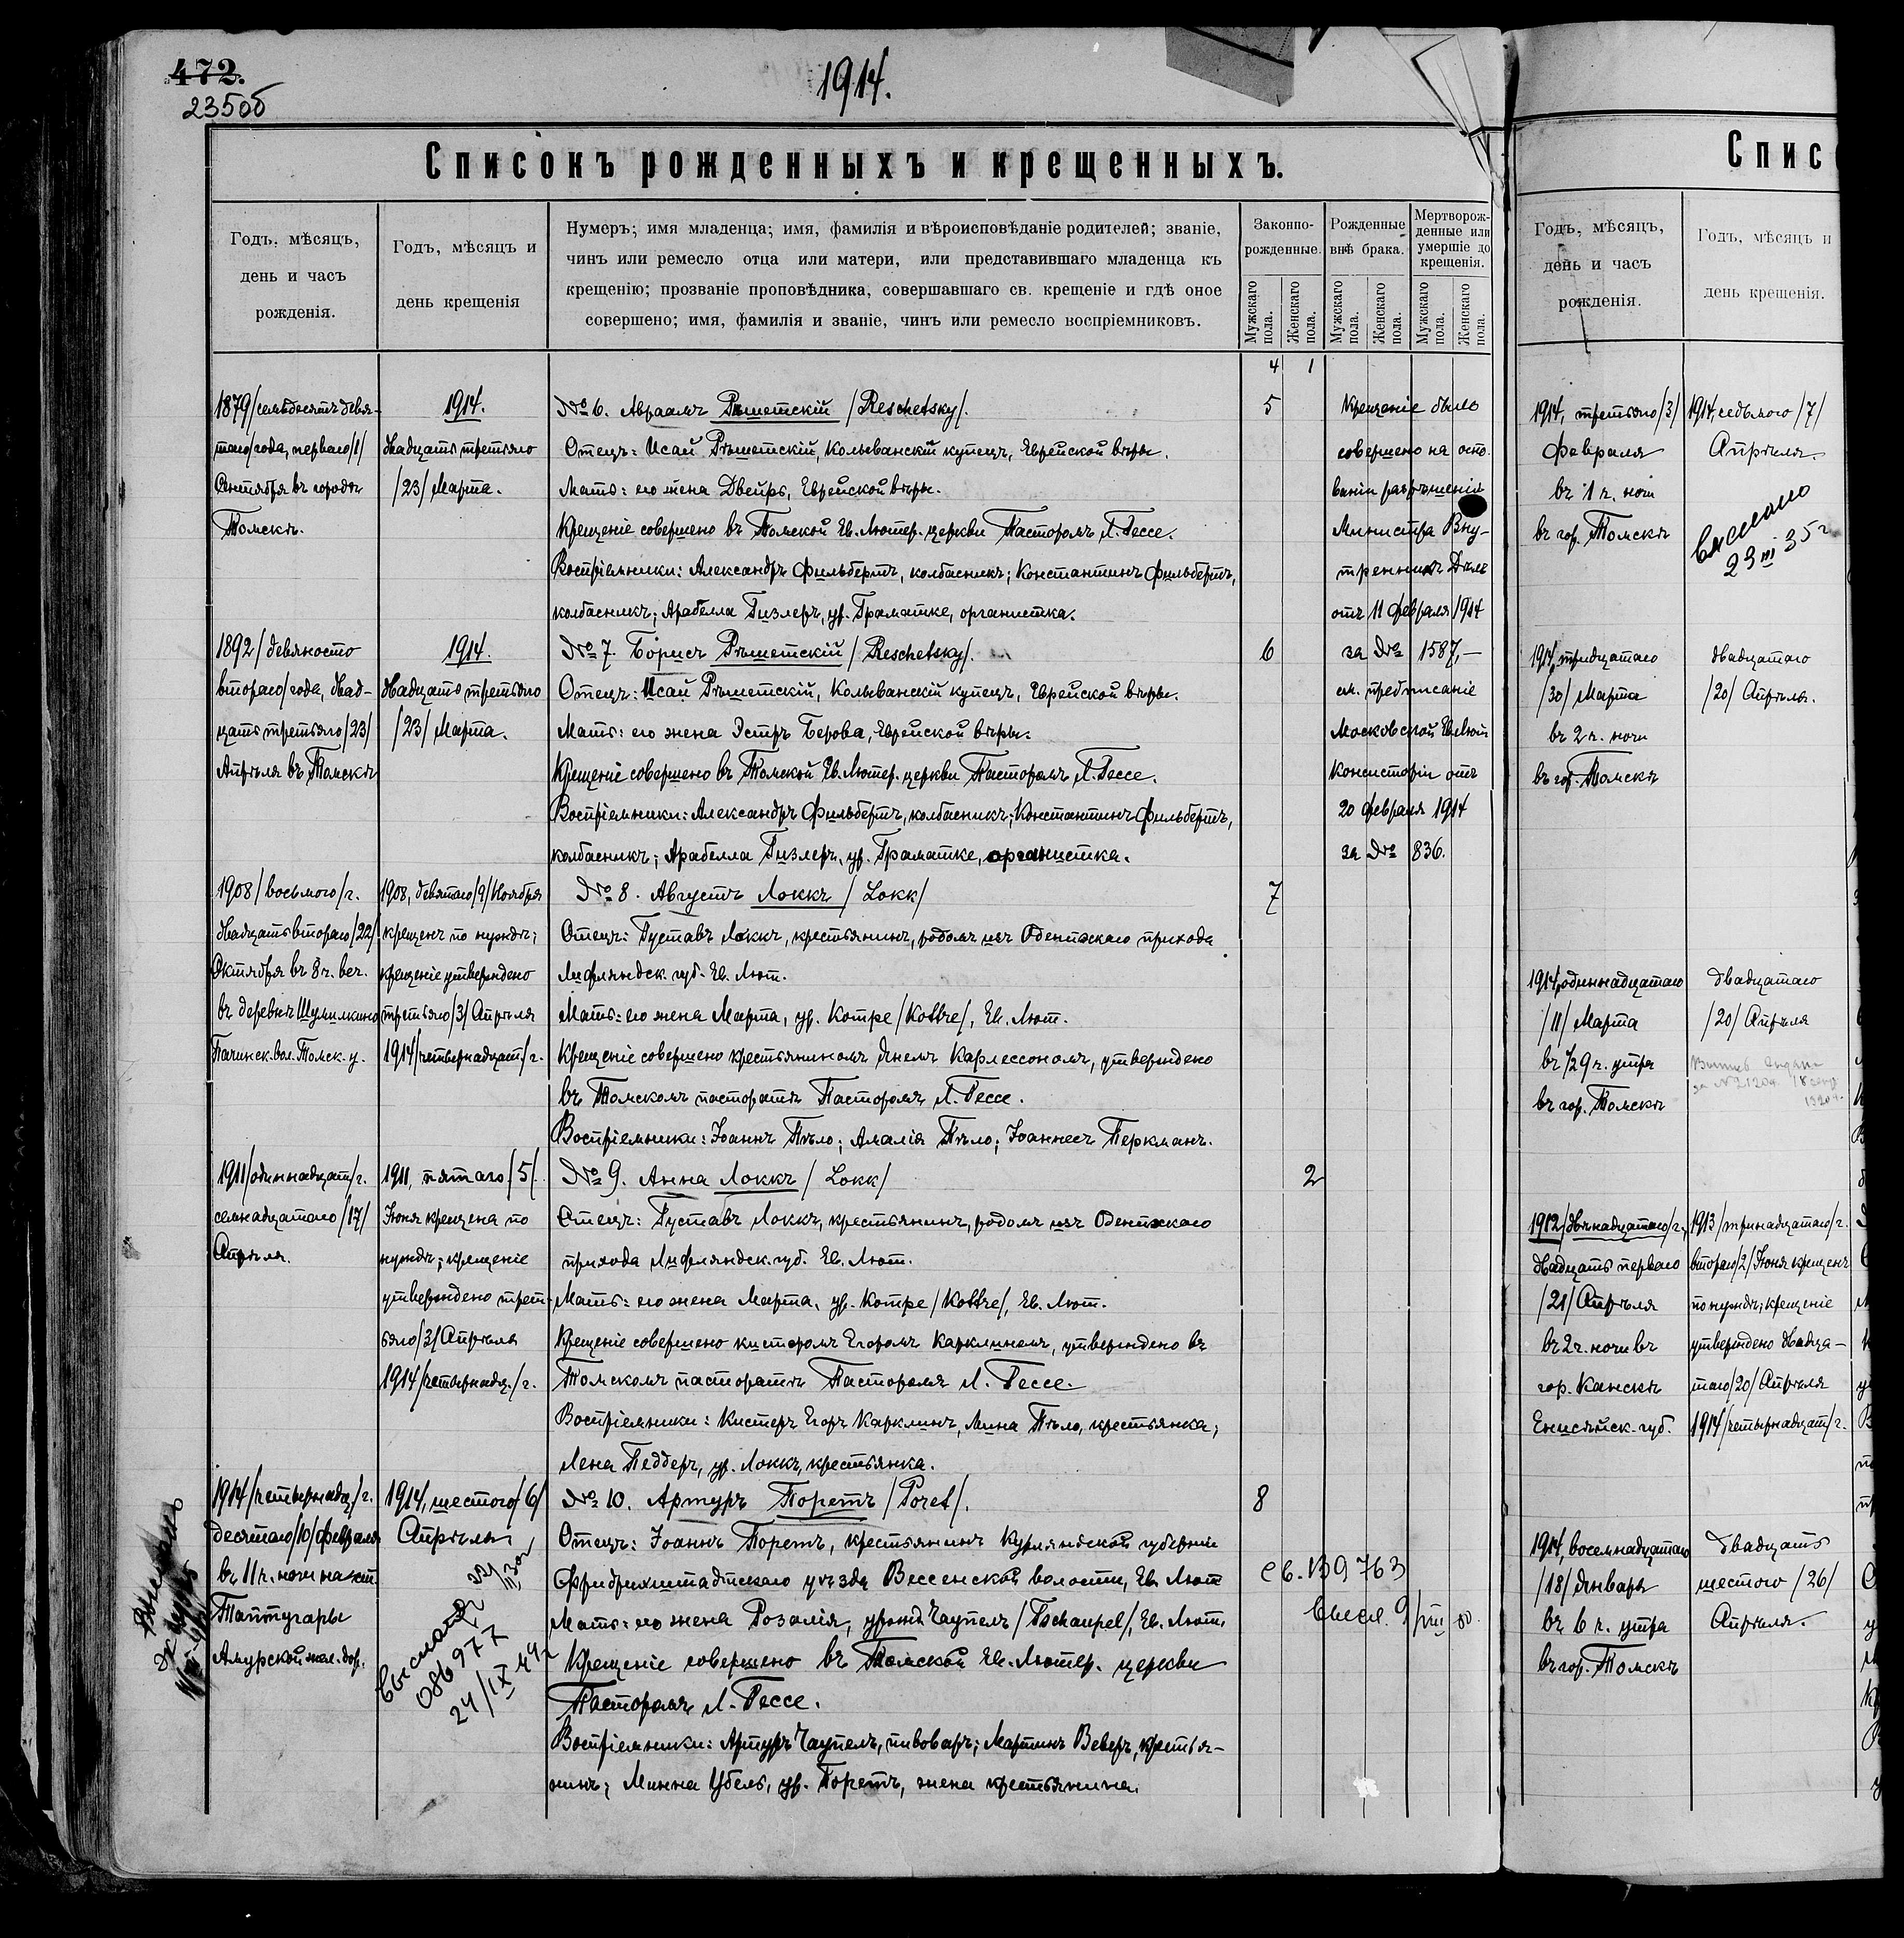 472.
235об
1914.
Списокъ рожденныхъ и крещенныхъ.
Годъ, мѣсяцъ,
день и часъ
рожденія.
Годъ, мѣсяцъ и
день крещенія
Нумеръ; имя младенца; имя, фамилія и вѣроисповѣданіе родителей; званіе,
чинъ или ремесло отца или матери, или представившаго младенца къ
крещенію; прозваніе проповѣдника, совершавшаго св. крещеніе и гдѣ оное
совершено; имя, фамилія и званіе, чинъ или ремесло воспріемниковъ.
Законно-
рожденные.
Рожденные
внѣ брака.
Мертворож-
денные или
умершіе до
крещенія.
Мужскаго пола.
Женскаго пола.
Мужскаго пола.
Женскаго пола.
Мужскаго пола.
Женскаго пола.
4 1
1879/семьдесятъ девя-
таго/года, перваго/1/
Сентября въ городѣ
Томскѣ.
1914.
двадцать третьяго
/23/ Марта.
№ 6. Авраамъ Рѣшетскій /Reschetsky/.
Отецъ: Исай Рѣшетскій, Колыванскій купецъ, Еврейской вѣры.
Мать: его жена Двейра, Еврейской вѣры.
Крещеніе совершено въ Томской Ев. Лютер. церкви Пасторомъ Л. Гессе.
Воспріемники: Александръ Фильбертъ, колбасникъ; Константинъ Фильбертъ,
колбасникъ; Арабелла Гизлеръ, ур. Граматке, органистка.
5
Крещеніе было
совершено на осно-
ваніи разрѣшенія
Министра Вну-
треннихъ Дѣлъ
отъ 11 Февраля 1914
за № 1587,—
см. предписаніе
Московской Ев. Лют.
Консисторіи отъ
20 Февраля 1914
за № 836.
1892/девяносто
второго/года, двад-
цать третьяго/23/
Апрѣля въ Томскѣ
1914.
двадцать третьяго
/23/ Марта.
№ 7. Борисъ Рѣшетскій /Reschetsky/.
Отецъ: Исай Рѣшетскій, Колыванскій купецъ, Еврейской вѣры.
Мать: его жена Эстръ Берова, Еврейской вѣры.
Крещеніе совершено въ Томской Ев. Лютер. церкви Пасторомъ Л. Гессе.
Воспріемники: Александръ Фильбертъ, колбасникъ; Константинъ Фильбертъ,
колбасникъ; Арабелла Гизлеръ, ур. Граматке, органистка.
6
1908/восьмого/г.
двадцать второго/22/
Октября въ 8 ч. веч.
въ деревнѣ Шумилкино
Пачинск. вол. Томск. у.
1908, девятаго/9/Ноября
крещенъ по нуждѣ;
крещеніе утверждено
третьяго/3/Апрѣля
1914/четырнадцат/г.
№ 8. Августъ Локкъ /Lokk/
Отецъ: Густавъ Локкъ, крестьянинъ, родомъ изъ Оденпэскаго прихода
Лифляндск. губ. Ев. Лют.
Мать: его жена Марта, ур. Котре /Kottre/, Ев. Лют.
Крещеніе совершено крестьяниномъ Яномъ Карлессономъ, утверждено
въ Томскомъ пасторатѣ Пасторомъ Л. Гессе.
Воспріемники: Іоаннъ Пѣло; Амалія Пѣло; Іоаннесъ Перкманъ.
7
1911/одиннадцат/г.
семнадцатаго/17/
Апрѣля.
1911, пятаго/5/
Іюня крещена по
нуждѣ; крещеніе
утверждено трет-
ьяго/3/Апрѣля
1914/четырнадц./г.
№ 9. Анна Локкъ /Lokk/
Отецъ: Густавъ Локкъ, крестьянинъ, родомъ изъ Оденпэскаго
прихода Лифляндск. губ. Ев. Лют.
Мать: его жена Марта, ур. Котре /Kottre/, Ев. Лют.
Крещеніе совершено кистеромъ Егоромъ Карклиномъ, утверждено въ
Томскомъ пасторатѣ Пасторомъ Л. Гессе.
Воспріемники: Кистеръ Егоръ Карклинъ, Мина Пѣло, крестьянка;
Лена Педдеръ, ур. Локкъ, крестьянка.
2
1914/четырнадц./г.
десятаго/10/Февраля
въ 11 ч. ночи на ст.
Таптугары
Амурской жел. дор.
1914, шестого/6/
Апрѣля
выслано
086977
24/IX 49г
№ 10. Артуръ Поретъ /Poret/.
Отецъ: Іоаннъ Поретъ, крестьянинъ Курляндской губерніи
Фридрихштадтскаго уѣзда Вессенской волости, Ев. Лют
Мать: его жена Розалія, урожд. Чаупель /Tschaupel/, Ев. Лют.
Крещеніе совершено въ Томской Ев.-Лютер. церкви
Пасторомъ Л. Гессе.
Воспріемники: Артуръ Чаупель, пивоваръ; Мартинъ Веверъ, крестья-
нинъ; Минна Убель, ур. Поретъ, жена крестьянина.
8
св. 139763
Спис
Годъ, мѣсяцъ,
день и часъ
рожденія.
Годъ, мѣсяцъ и
день крещенія.
1914, третьяго/3/
Февраля
въ 1 ч. ночи
въ гор. Томскѣ
1914, седьмого/7/
Апрѣля.
выслано
23 III 35г
1914, тридцатаго
/30/ Марта
въ 2 ч. ночи
въ гор. Томскѣ
двадцатаго
/20/ Апрѣля.
1914, одиннадцатаго
/11/ Марта
въ 1/2 9 ч. утра
въ гор. Томскѣ
двадцатаго
/20/ Апрѣля
1912/двѣнадцатаго/г.
двадцать перваго
/21/ Апрѣля
въ 2 ч. ночи въ
гор. Канскѣ
Енисейск. губ.
1913/тринадцатаго/г.
второго/2/Іюня крещенъ
по нуждѣ; крещеніе
утверждено двадца-
таго/20/Апрѣля
1914/четырнадцат/г.
1914, восемнадцатаго
/18/ Января
въ 6 ч. утра
въ гор. Томскѣ
двадцать
шестого /26/
Апрѣля.